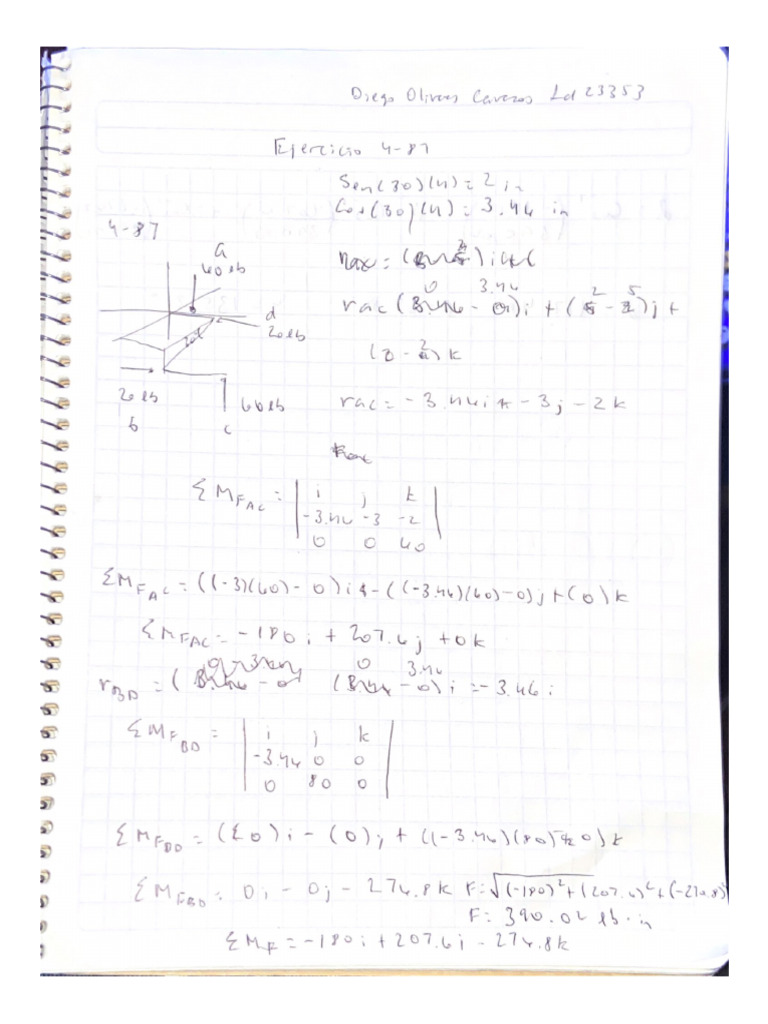 Diego Olivers Cavazos Ld 23353
Ejercicio 4-87
Sen(30)(4) = 2 in
Cos(30)(4) = 3.46 in
4-87
a
60 lb
d
20 lb
20 lb
b
60 lb
c
rac = - 3.46 i - 3 j - 2 k
Σ M F AC = | i j k |
| -3.46 -3 -2 |
| 0 0 60 |
Σ M F AC = ((-3)(60) - 0) i - ((-3.46)(60) - 0) j + (0) k
Σ M F AC = - 180 i + 207.6 j + 0 k
0 3.46
r BD = ( - 0) i = - 3.46 i
Σ M F BD = | i j k |
| -3.46 0 0 |
| 0 80 0 |
Σ M F BD = (0) i - (0) j + ((-3.46)(80) - 0) k
Σ M F BD = 0 i - 0 j - 274.8 k F = √(-180)² + (207.6)² + (-274.8)
F = 390.02 lb·in
Σ M F = - 180 i + 207.6 j - 274.8 k